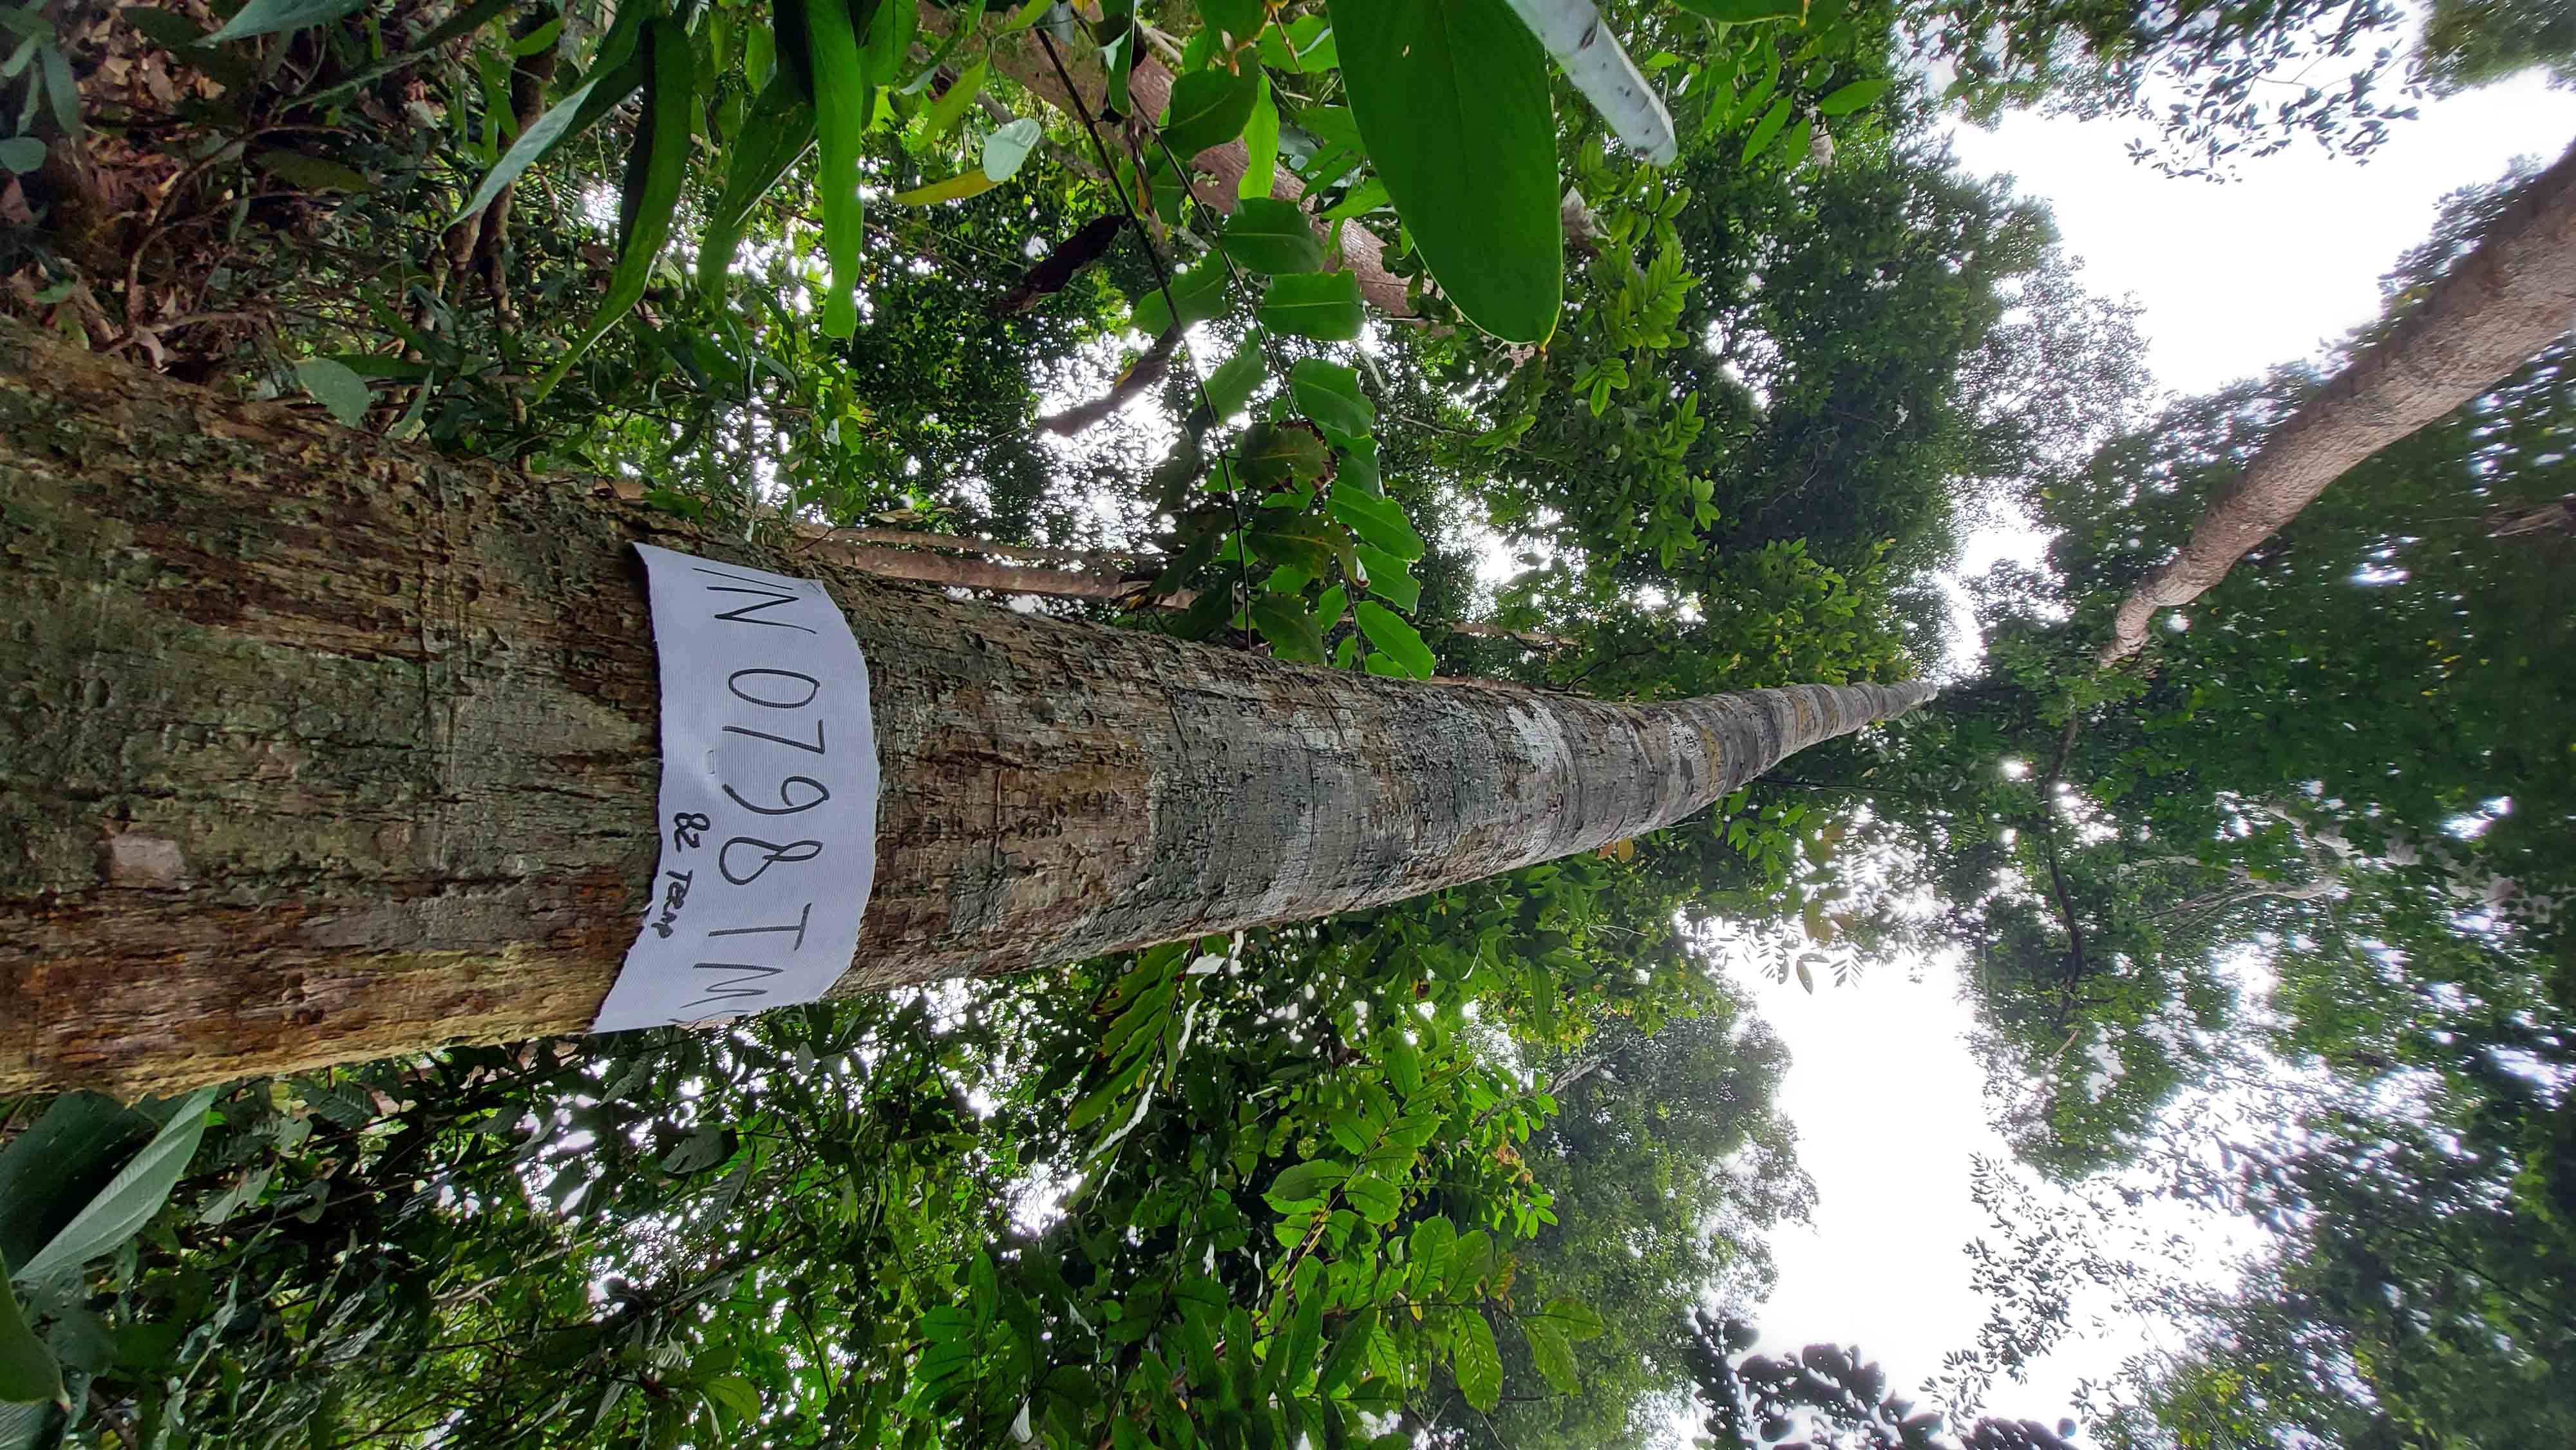 IN 0798 TM
82 TERAP